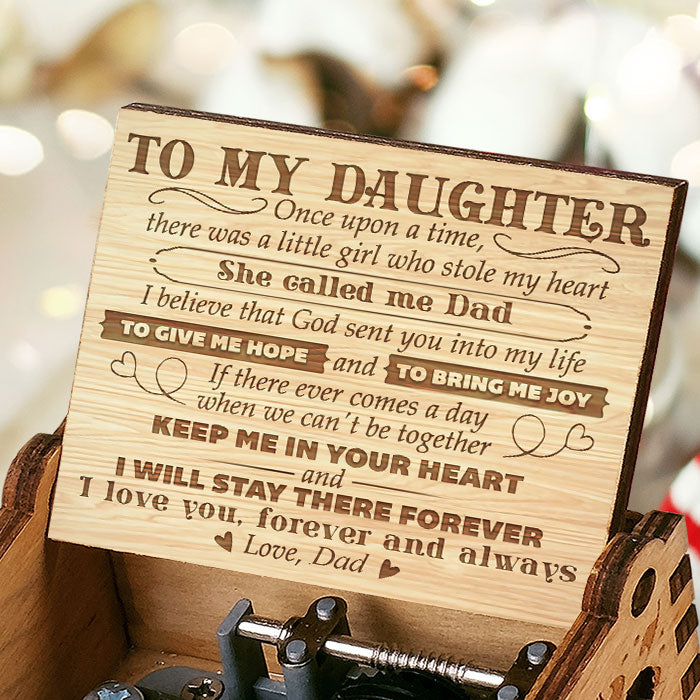 TO MY DAUGHTER
Once upon a time,
there was a little girl who stole my heart
She called me Dad
I believe that God sent you into my life
TO GIVE ME HOPE and TO BRING ME JOY
If there ever comes a day
when we can't be together
KEEP ME IN YOUR HEART
and
I WILL STAY THERE FOREVER
I love you, forever and always
Love, Dad